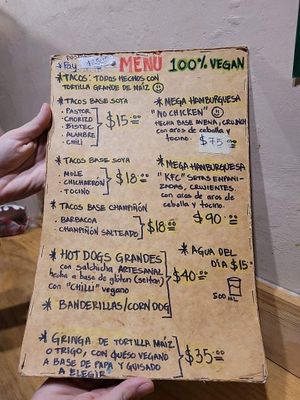 MENÚ 100% VEGAN
* TACOS: TODOS HECHOS CON
TORTILLA GRANDE DE MAIZ
* TACOS BASE SOYA
- PASTOR
- CHORIZO
- BISTEC
- ALAMBRE
- CHILI
$15.00
* TACOS BASE SOYA
- MOLE
- CHICHARRON
- TOCINO
$18.00
* TACOS BASE CHAMPIÑÓN
- BARBACOA
- CHAMPIÑÓN SALTEADO
$18.00
* MEGA HAMBURGUESA
"NO CHICKEN"
HECHA BASE AVENA, CRUNCH
con aros de cebolla y
tocino.
$75.00
* MEGA-HAMBURGUESA
"KFC" SETAS EMPANI-
ZADAS, CRUJIENTES.
con aros de aros de
cebolla y tocino.
$90.00
* HOT DOGS GRANDES
con salchicha ARTESANAL
hecha a base de gluten (seitan)
con "CHILLI" vegano
* BANDERILLAS/CORN DOG
$40.00
* AGUA DEL
DÍA $15.00
500 ML
* GRINGA DE TORTILLA MAÍZ
O TRIGO, CON QUESO VEGANO
A BASE DE PAPA Y GUISADO
A ELEGIR
$35.00